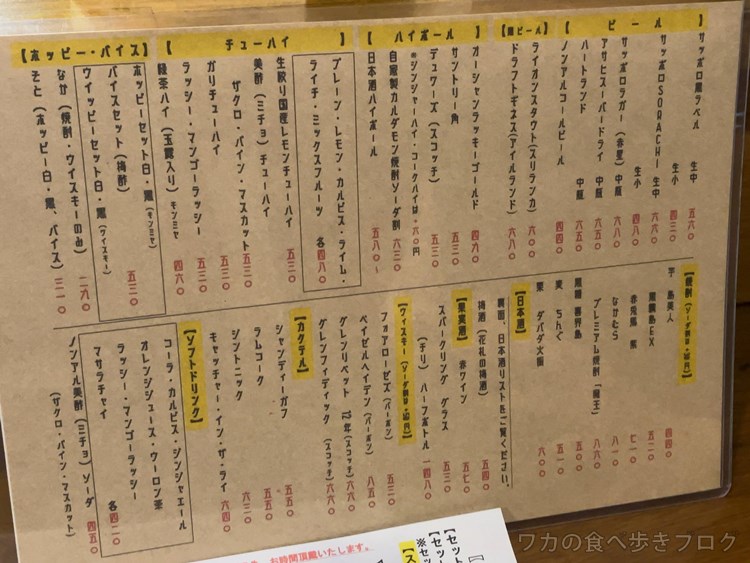 【ビール】
サッポロ黒ラベル 生中 五六〇
生小 四三〇
サッポロSORACHI 生中 六六〇
生小 四八〇
サッポロラガー（赤星） 中瓶 六八〇
アサヒスーパードライ 中瓶 六五〇
ハートランド 中瓶 六五〇
ノンアルコールビール 四四〇
ライオンスタウト（スリランカ） 六八〇
ドラフトギネス（アイルランド） 六八〇
【ハイボール】
オーシャンラッキーゴールド 四九〇
サントリー角 五三〇
デュワーズ（スコッチ） 五三〇
※ジンジャーハイ・コークハイは＋六〇円
自家製カルダモン焼酎ソーダ割 六三〇
日本酒ハイボール 五八〇～
【チューハイ】
プレーン・レモン・カルピス・ライム・
ライチ・ミックスフルーツ 各四八〇
生搾り国産レモンチューハイ 五三〇
美酢（ミチョ）チューハイ
ザクロ・パイン・マスカット 五三〇
ガリチューハイ 五三〇
ラッシー・マンゴーラッシー 五三〇
緑茶ハイ（玉露入り）キンミヤ 四六〇
【ホッピー・バイス】
ホッピーセット白・黒（キンミヤ）
バイスセット（梅酢） 五三〇
ウイッピーセット白・黒（ウィスキー）
なか（焼酎・ウイスキーのみ） 二九〇
そと（ホッピー白・黒、バイス） 三一〇
【焼酎（ソーダ割り＋
芋 島美人 四四〇
黒霧島EX 五二〇
赤兎馬 紫
なかむら 八一〇
プレミアム焼酎「魔王」 八六〇
黒糖 喜界島 五〇〇
麦 ちんぐ 五一〇
栗 ダバダ火振 六〇〇
【日本酒】
別紙、日本酒リストをご覧ください。
梅酒（花札の梅酒） 五四〇
【果実酒】 赤ワイン
スパークリング グラス 五三〇
（チリ） ハーフボトル 一四八〇
【ウィスキー（ソーダ割り＋
フォアローゼズ（バーボン） 五三〇
ベイゼルヘイデン（バーボン） 八五〇
グレンリベット 12年（スコッチ） 六六〇
グレンフィディック（スコッチ） 六六〇
【カクテル】
シャンディーガフ 五五〇
ラムコーク 五五〇
ジントニック 六三〇
キャッチャー・イン・ザ・ライ 六四〇
【ソフトドリンク】
コーラ・カルピス・ジンジャエール
オレンジジュース・ウーロン茶
ラッシー・マンゴーラッシー
マサラチャイ 各四二〇
ノンアル美酢（ミチョ）ソーダ 四五〇
（ザクロ・パイン・マスカット）
お時間頂戴いたします。
【セット
【セッ
※セッ
【ス
ワカの食べ歩きブログ